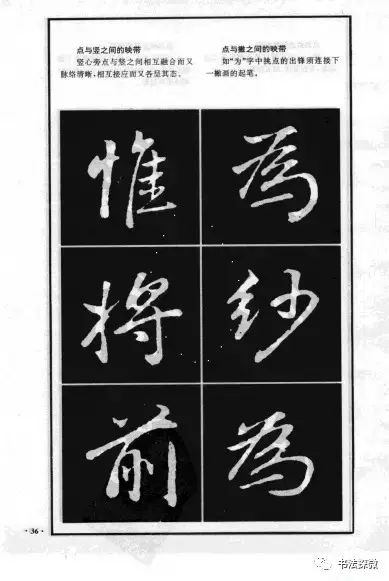 点与竖之间的映带
竖心旁点与竖之间相互融合而又
脉络清晰，相互接应而又各呈其态。
点与撇之间的映带
如“为”字中挑点的出锋须连接下
一撇画的起笔。
惟 為
將 紗
前 為
·36·
书法探微